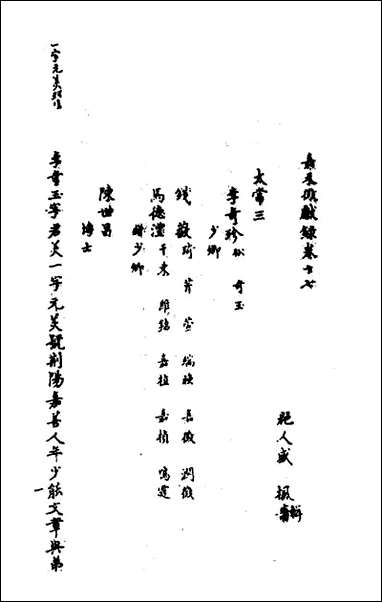 嘉禾徵獻錄卷十七
祀人盛楓
輯
太常三
李奇珍 奇玉
少卿
錢嶔 琦 萱 端映 嘉徵 潤徵
馬德澧 千乘 維鉉 嘉植 嘉楨 鳴霆
少卿
陳世昌
博士
李奇玉字君美一字元美號荆陽嘉善人年少能文章與弟
一
一字元美